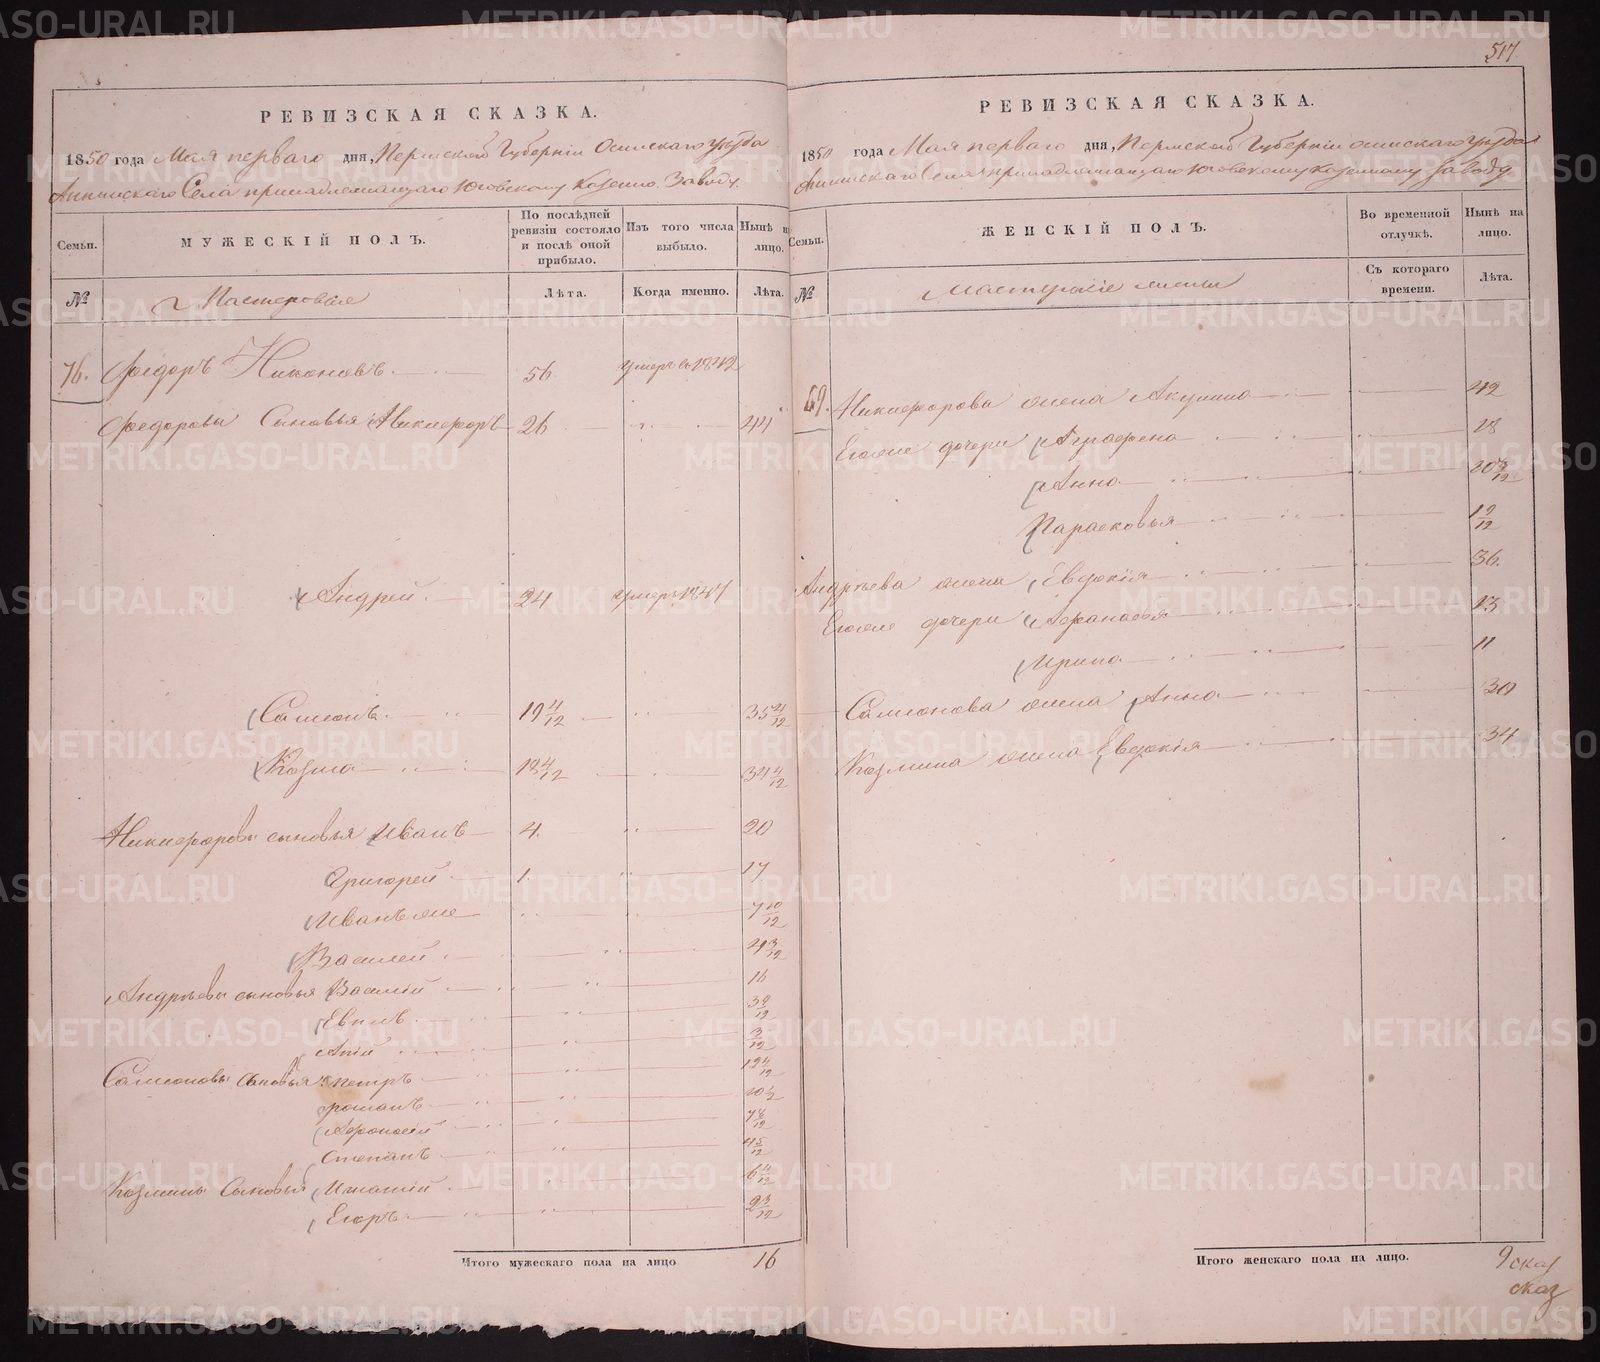 517
РЕВИЗСКАЯ СКАЗКА.
1850 года Мая перваго дня, Пермской Губернiи Осинскаго уезда
Аннинскаго Села принадлежащаго Юговскому Казенно. Заводу.
Семьи. МУЖЕСКIЙ ПОЛЪ. По послѣдней ревизiи состояло и послѣ оной прибыло. Изъ того числа выбыло. Нынѣ на лицо.
№ Мастеровые Лѣта. Когда именно. Лѣта.
76. Федоръ Никоновъ 56 умеръ въ 1842
Федоровы Сыновья Никифоръ 26 44
Андрей 24 умеръ 1847
Самсонъ 19 4/12 35 4/12
Козма 34 4/12
Никифоровы сыновья Иванъ 4. 20
Григорей 1. 17
Иванъ же 7 10/12
Василей 4 3/12
Андрѣевы сыновья Василiй 16
3 9/12
3/12
Самсоновы Сыновья Петръ 12 4/12
романъ 10 1/2
Афонасiй 7 8/12
Степанъ 4 5/12
Козмины Сыновья Игнатiй 6 4/12
Егоръ 2 3/12
Итого мужескаго пола на лицо 16
РЕВИЗСКАЯ СКАЗКА.
1850 года Мая перваго дня, Пермской Губернiи осинскаго уезда
Аннинскаго Села принадлежащаго Юговскому казенному заводу
Семьи. ЖЕНСКIЙ ПОЛЪ. Во временной отлучкѣ. Нынѣ на лицо.
№ Мастерскiе жены Съ котораго времени. Лѣта.
Никифорова жена Акулина 42
Егоже дочери Аграфена 28
Анна
Парасковья
Андрѣева жена Евдокiя 36.
Егоже дочери Афанасья 13
Ирина 11
Самсонова жена Анна 30
Козмина жена Евдокiя 34
Итого женскаго пола на лицо. 9
METRIKI.GASO-URAL.RU